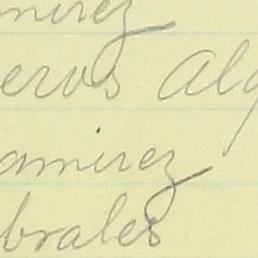 mirez
eros Alg
amirez
brales